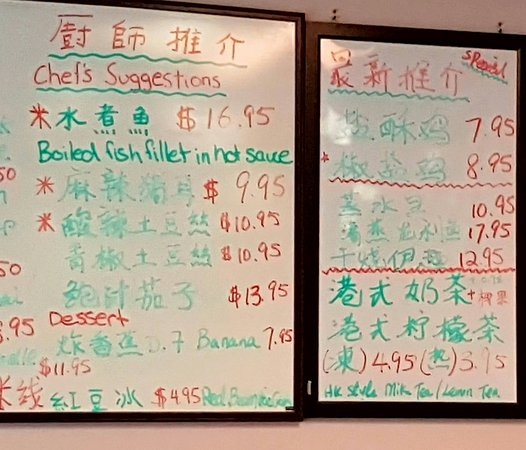 廚師推介
Chef's Suggestions
水煮魚 $16.95
Boiled fish fillet in hot sauce
麻辣 $ 9.95
酸辣土豆絲 $10.95
青椒土豆絲 $10.95
鮑汁茄子 $13.95
Dessert
炸香蕉 D.f Banana 7.95
$11.95
米线 紅豆冰 $4.95 Red Bean
最新推介 special
鹽酥鸡 7.95
椒盐鸡 8.95
10.95
17.95
干燒伊面 12.95
港式奶茶
港式柠檬茶
(凍)4.95(热)3.75
HK Style Milk Tea/Lemon Tea